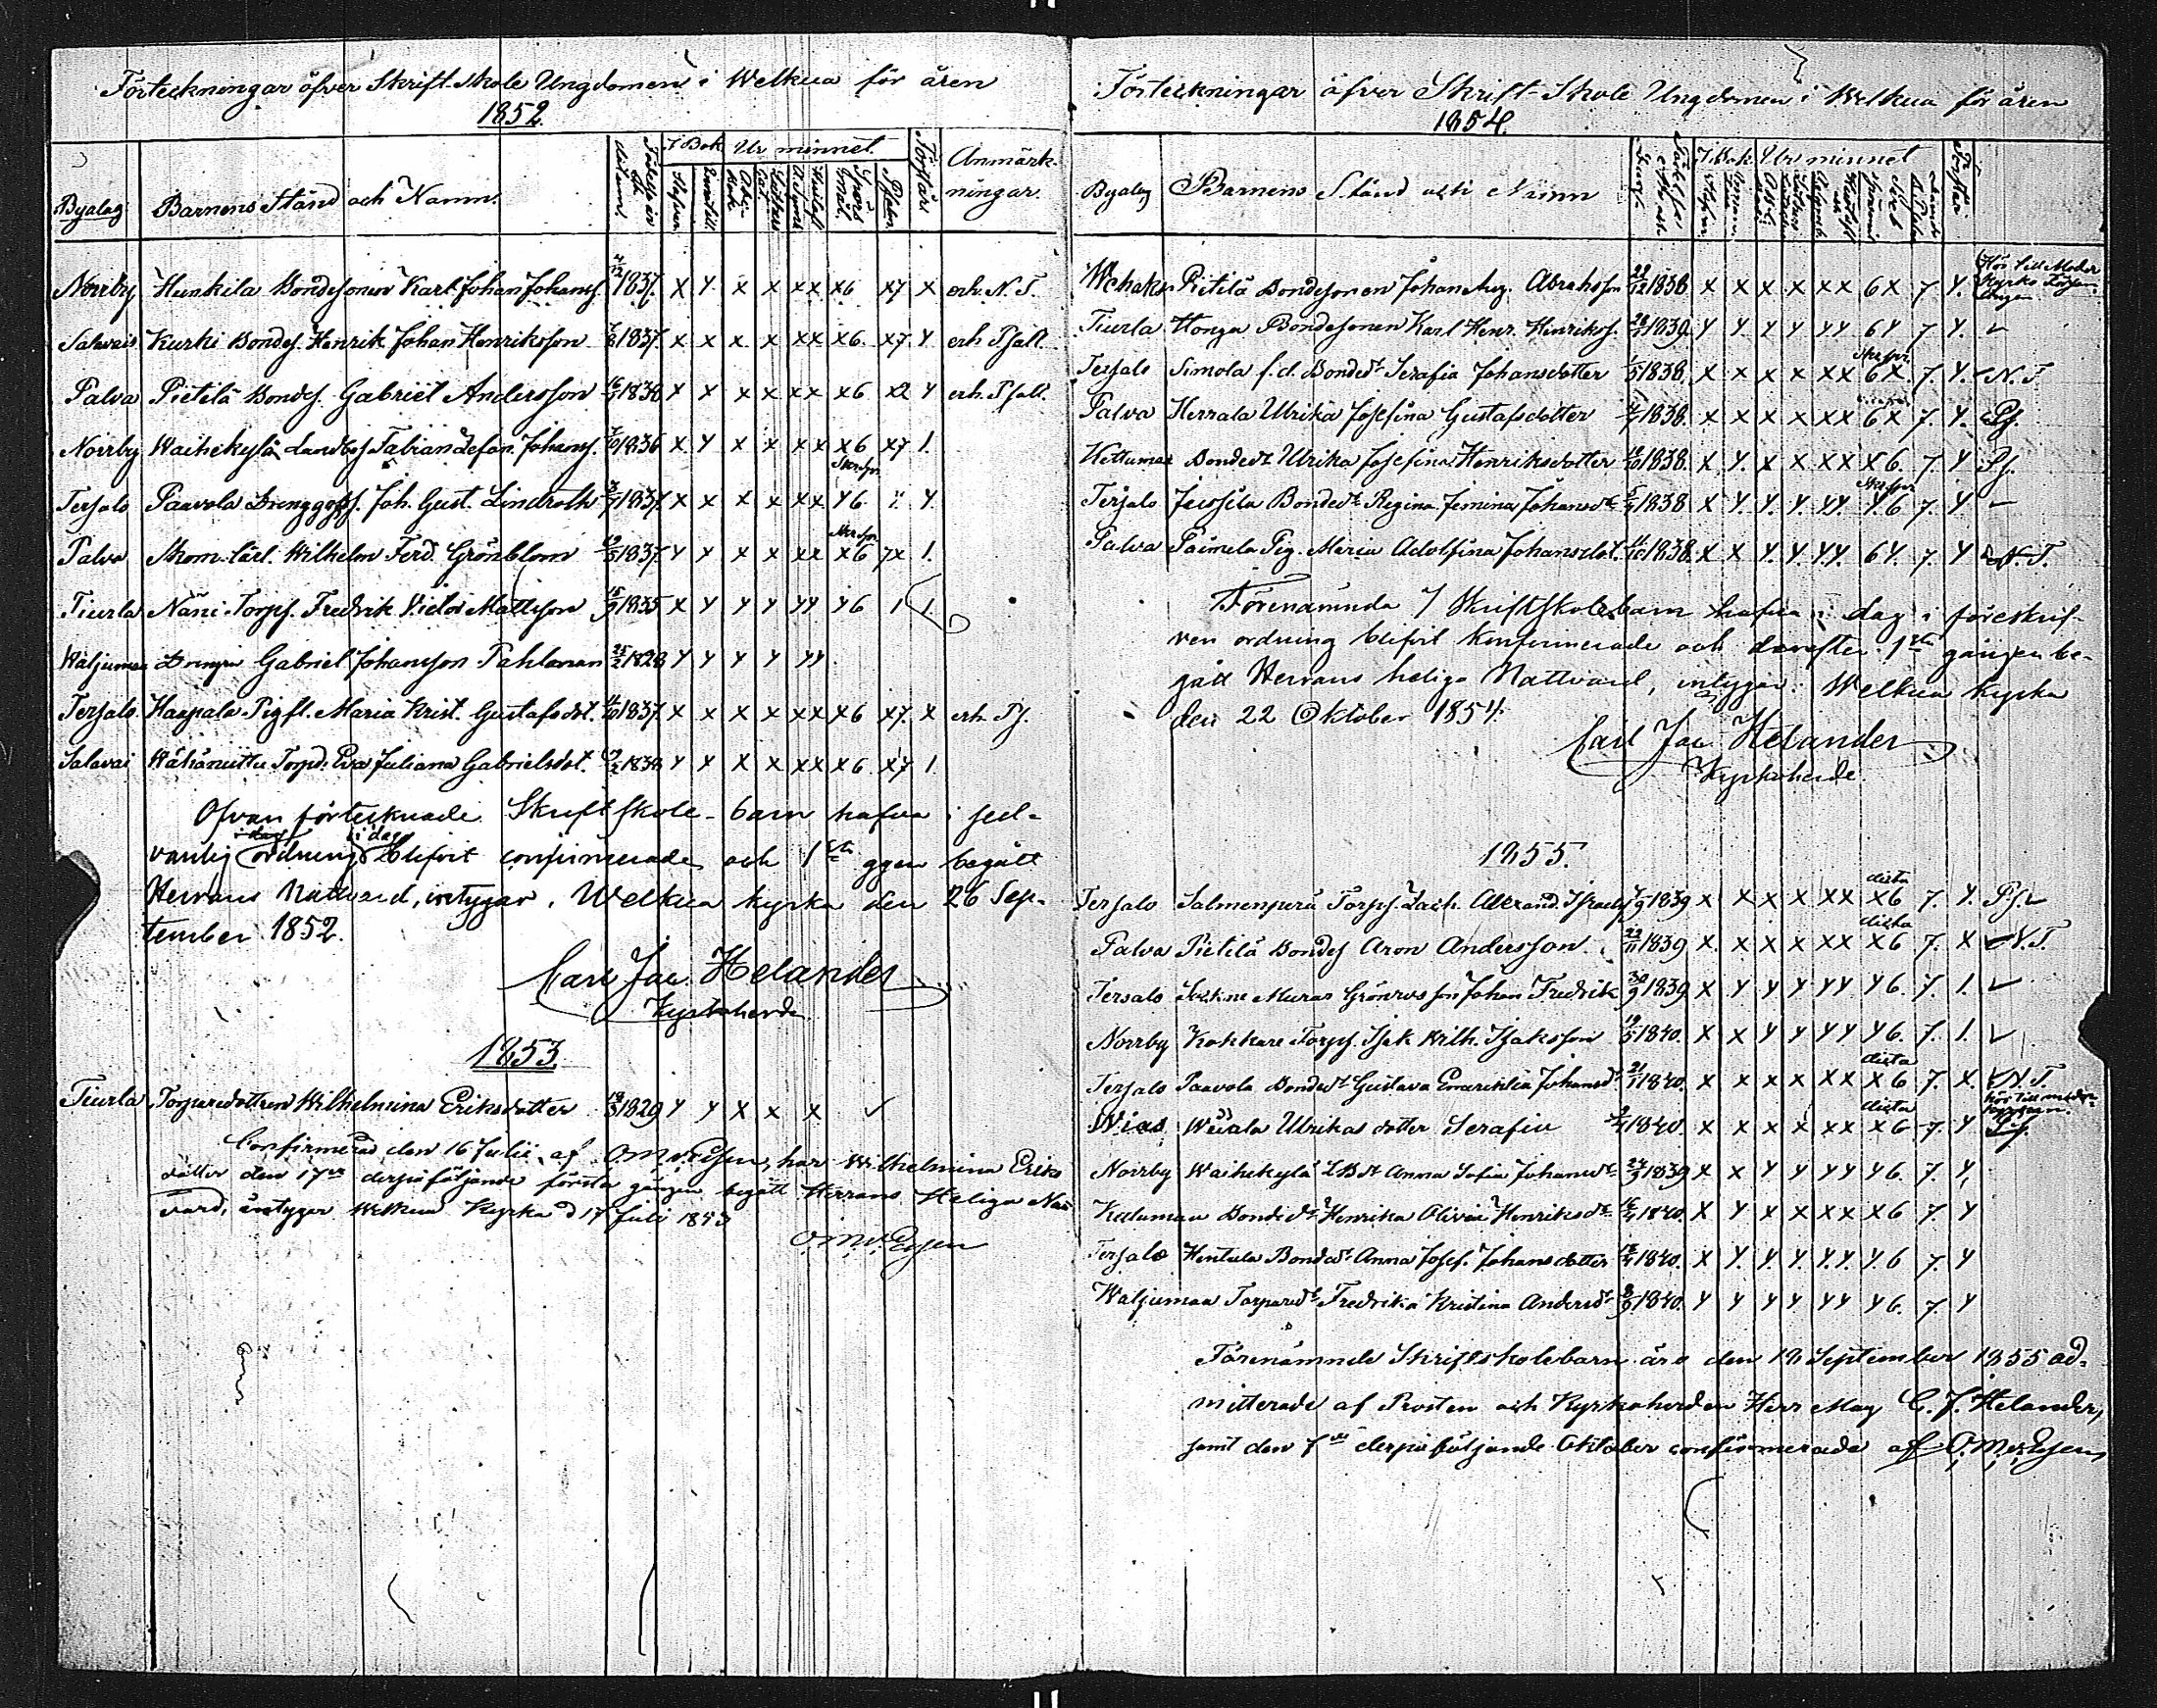 Förteckningar öfver Skrift-Skole Ungdomen i Welkua för åren
1852.
Byalag Barnens Stånd och Namn. I Bok Ur minnet. Förstånd Anmärkningar.
Norrby Hunkila Bondesonen Karl Johan Johanss. 4/12 1837. x y x x xx x6 x7 x erh. N. T.
Salavais Kurki Bondes. Henrik Johan Henriksson 1837. x x x x xx x6. x7 y erh Psalt.
Palva Pietilä Bondes. Gabriel Andersson 1838 x x x x xx x6 x2 y erh. Psalt.
Norrby Waihekylä Landbs Fabian Stefan. Johanss. 1836 x y x x xx x6 x7 1.
Tersalo Paavola Drenggoss. Joh. Gust. Lindroth 1837. x x x x xx y6 y.
Palva Skom. lärl. Wilhelm Ferd. Grönblom 1837. y x x x xx x6 7x 1.
Tiurla Näni Torps. Fredrik Victor Mattsson 15/9 1835 x y y y yy y6 1 1.
Wäljumaa Drengen Gabriel Johansson Pahlman 25/2 1828 y y y y yy
Tersalo Haapala Pigfl. Maria Krist. Gustafsdot. 1837. x x x x xx x6 x7. x erh. Ps.
Salavai Wähänuittu Torpd. Eva Juliana Gabrielsdot. 1838 y x x x xx x6 x7 1.
Ofvan förtecknade Skriftskole-barn hafva i sed-
i dag i dag
vanlig ordning blifvit confirmerade och 1sta ggen begått
Herrans Nattvard, intygar. Welkua kyrka den 26 Sep-
tember 1852.
Carl Jac. Helander
Kyrkoherde
1853.
Tiurla Torparedottren Wilhelmina Eriksdotter 1829 y y x x x ✓
Confirmerad den 16 Julii af O. M. v. Essen, har Wilhelmina Eriks
dotter den 17de derpåföljande första gången begått Herrans Heliga Natt
vard, intygar Welkua Kyrka d 17 Juli 1853
O. M. v. Essen
Förteckningar öfver Skrift-Skole Ungdomen i Welkua för åren
1854.
Byalag Barnens Stånd och Namn I Bok Ur minnet Förstånd
Hör till Moder
Kyrko Försam
lingen
Pietilä Bondesonen Johan Aug. Abrahsson 1838 x x x x xx 6x 7 y.
Tiurla Honga Bondesonen Karl Henr. Henrikss. 1839. y y. y y yy 6y 7 y. ✓
Tersalo Simola f.d. Bonded. Serafia Johansdotter 1838. x x x x xx 6x. 7. y. N. T.
Palva Herrala Ulrika Josefina Gustafsdotter 1838. x x x x xx 6x 7. y. Ps.
Kettumaa Bondedt. Ulrika Josefina Henriksdotter 1838. x y. x x xx x6. 7. y Ps.
Tersalo Jeussila Bondedt. Regina Jemina Johansdt. 1838 x y. y. y. yy y6 7. y –
Palva Paimela Pig. Maria Adolfina Johansdot. 1838. x x y. y. y.y. 6y. 7. y N. T.
Förenämnda 7 Skriftskolebarn hafva i dag i föreskrif-
ven ordning blifvit konfirmerade och derefter 1sta gången be-
gått Herrans heliga Nattvard, intygar. Welkua kyrka
den 22 Oktober 1854.
Carl Jac. Helander
Kyrkoherde
1855.
Tersalo Salmenperä Torps. Zach. Alexand. 1839 x x x x xx x6 7. y. Ps.
Palva Pietilä Bondes Aron Andersson 22/11 1839 x. x x x xx x6 7. x N. T.
Tersalo Johan Fredrik 30/9 1839 x y y y yy y6. 7. 1. ✓
Norrby Kokkare Torps. Isak Wilh. Isaksson 1840. x x y y yy y6. 7. 1. ✓
Tersalo Paavola Bondedt. Gustava Emerentia Johansdt. 21/1 1840. x x x x xx x6 7. x. N. T.
Wias Ulrikas dotter Serafia 1840. x x x x xx x6 7. y Ps.
Norrby Waihekylä LBdt Anna Sofia Johansdt. 24/3 1839 x x y y yy y6. 7. y,
Kettumaa Bondedt. Henrika Olivia Henriksdt. 1840. x y x x xx x6 7. y
Tersalo Hentula Bondedt. Anna Josef. Johansdotter 1840. x y. y. y. y.y. y6 7. y
Wäljumaa Torparedt. Fredrika Kristina Andersdt. 1840. y y y y yy y6. 7. y
Förenämnde Skriftskolebarn äro den 18 September 1855 ad-
mitterade af Prosten och Kyrkoherden Herr Mag C. J. Helander,
samt den 1ste derpåföljande Oktober confirmerade af O. M. v. Essen,